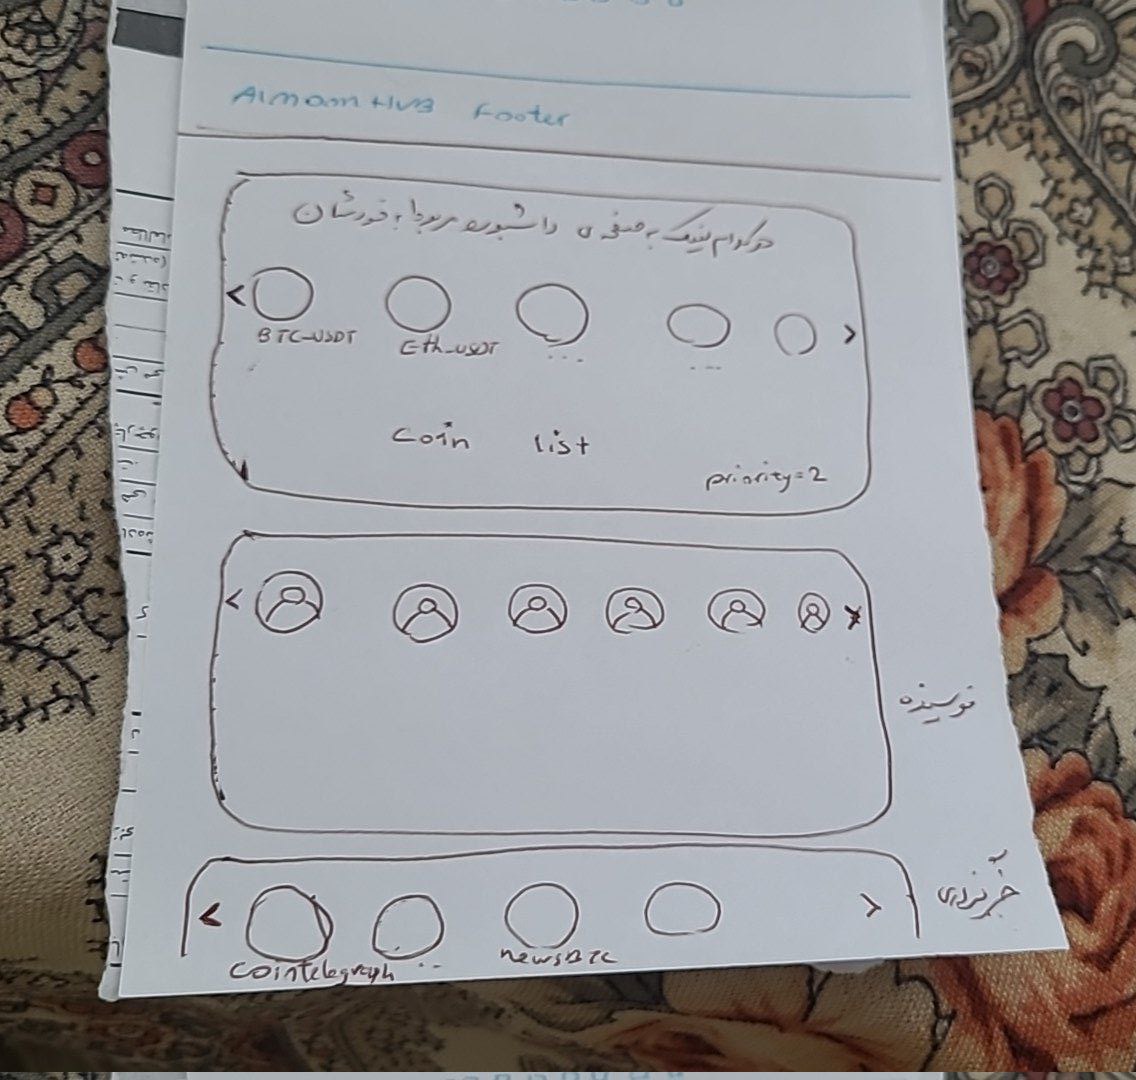 Almam HUB Footer
هر کدام لینک به صفحه ی داشبورد مربوط به خودشان
BTC-USDT
Eth-USDT
...
...
coin list
priority=2
نویسنده
خبرگزاری
Cointelegraph
..
newsBTC